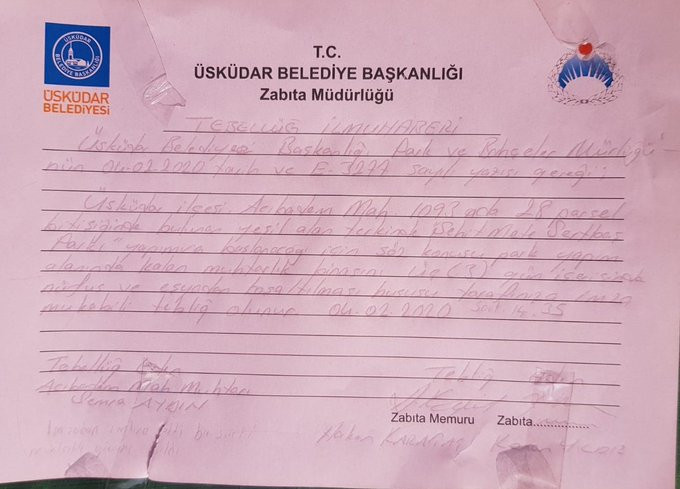 ÜSKÜDAR
BELEDİYE BAŞKANLIĞI
ÜSKÜDAR
BELEDİYESİ
T.C.
ÜSKÜDAR BELEDİYE BAŞKANLIĞI
Zabıta Müdürlüğü
TEBELLÜĞ İLMUHABERİ
Üsküdar Belediyesi Başkanlığı Park ve Bahçeler Müdürlüğü'
nün 04.02.2020 tarih ve E-3274 sayılı yazısı gereği:
Üsküdar ilçesi Acıbadem Mah. 1093 ada 28 parsel
bitişiğinde bulunan yeşil alan terkinde Şehit Mete Sertbaş
Parkı" yapımına başlanacağı için söz konusu park yapım
alanında kalan muhtarlık binasını üç (3) gün içerisinde
nüfus ve eşyadan boşaltılması hususu tarafınıza imza
mukabili tebliğ olunur. 04.02.2020 Saat 14.35
Tebellüğ Eden
Tebliğ Eden
Acıbadem Mah Muhtarı
Semra AYDIN
Zabıta Memuru
Zabıta..............
Hakan